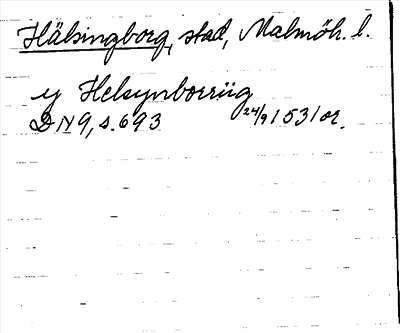 Hälsingborg, stad, Malmöh. l.
ij Helsynborriig
DN 9, s. 693 24/9 1531 or.